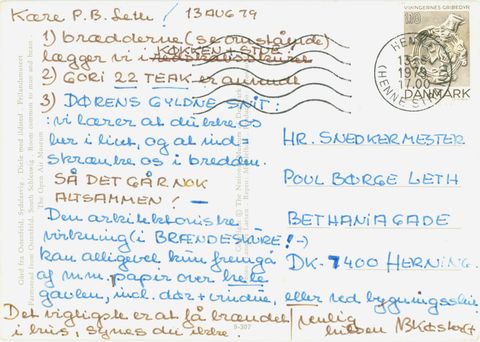 Kære P.B. Leth! 13 AUG 79
1) brædderne (se omstående)
KØKKEN + STUE!
lægger vi i
2) GORI 22 TEAK er anvendt
3) DØRENS GYLDNE SNIT:
: vi lærer at dyrke os
her i livet, og at ind-
skrænke os i bredden.
SÅ DET GÅR NOK
ALTSAMMEN! —
Den arkitektoniske
virkning (i BRÆNDESKURE! -)
kan alligevel kun fremgå
af m.m. papir over hele
gavlen, incl. dør + vindue, eller ved bygningsskin
Det vigtigste er at få brændet
i hus, synes du ikke.
venlig
hilsen
HR. SNEDKERMESTER
POUL BØRGE LETH
BETHANIAGADE
DK-7400 HERNING.
VIKINGERNES GRIBEDYR
DANMARK
HENNE
1979
17.00
(HENNE STR
The Open Air Museum
9-307